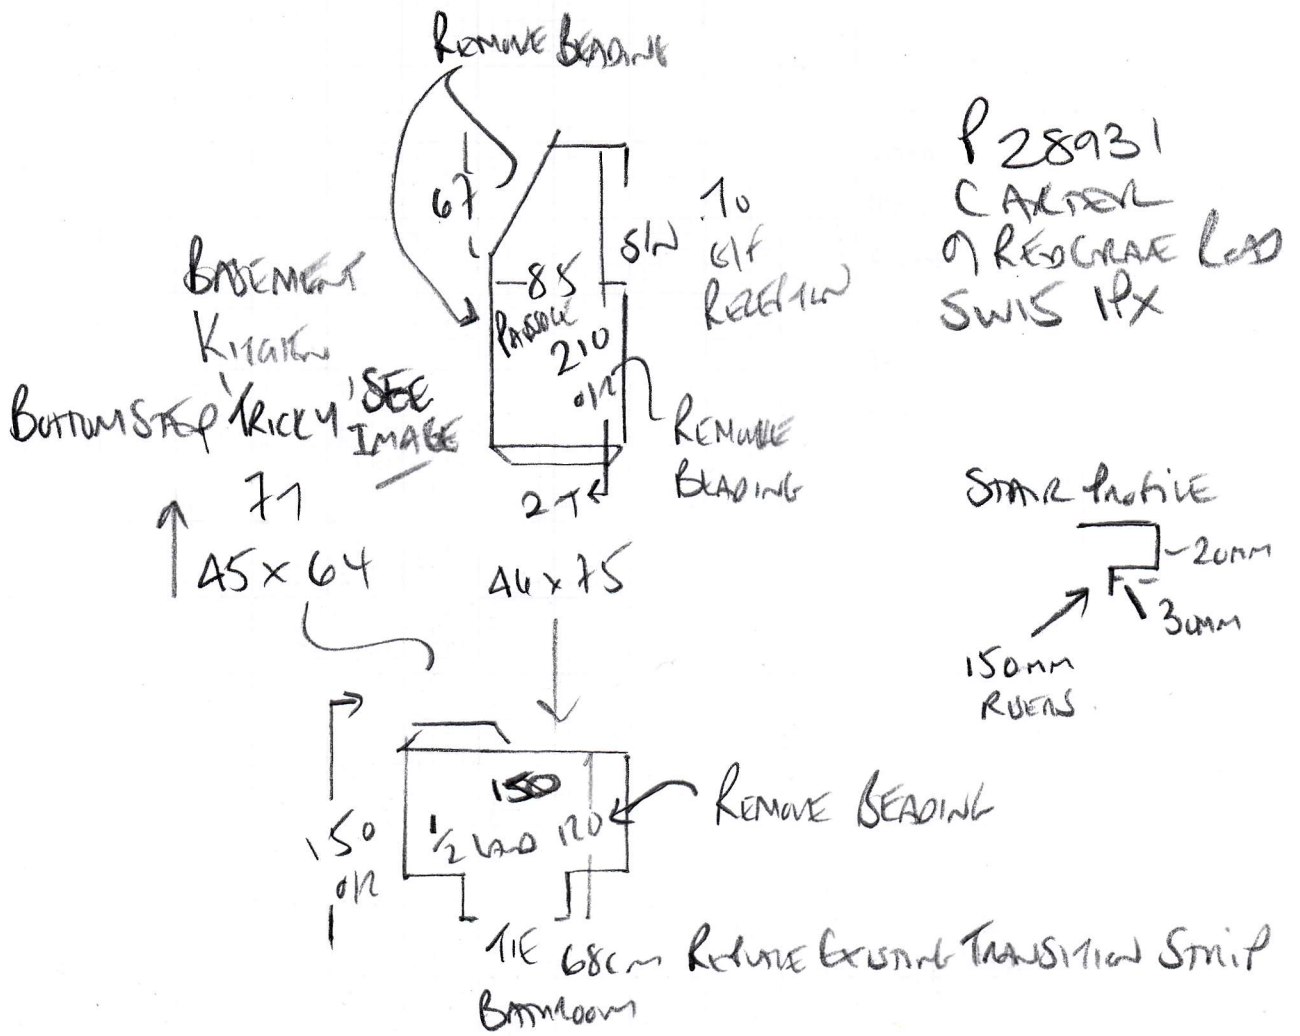 REMOVE BEADING
P28931
CARTER
9 REDGRAVE ROAD
SW15 1PX
67
S/N
TO
G/F
RECEPTION
BASEMENT
KITCHEN
85
PASSAGE
210
O/R
BOTTOM STEP 'TRICKY' SEE
IMAGE
REMOVE
BEADING
STAIR PROFILE
20MM
30MM
150MM
RISERS
2T
45 x 64
150
1/2 LAND 120
REMOVE BEADING
150
O/R
68CM REPLACE EXISTING TRANSITION STRIP
BATHROOM